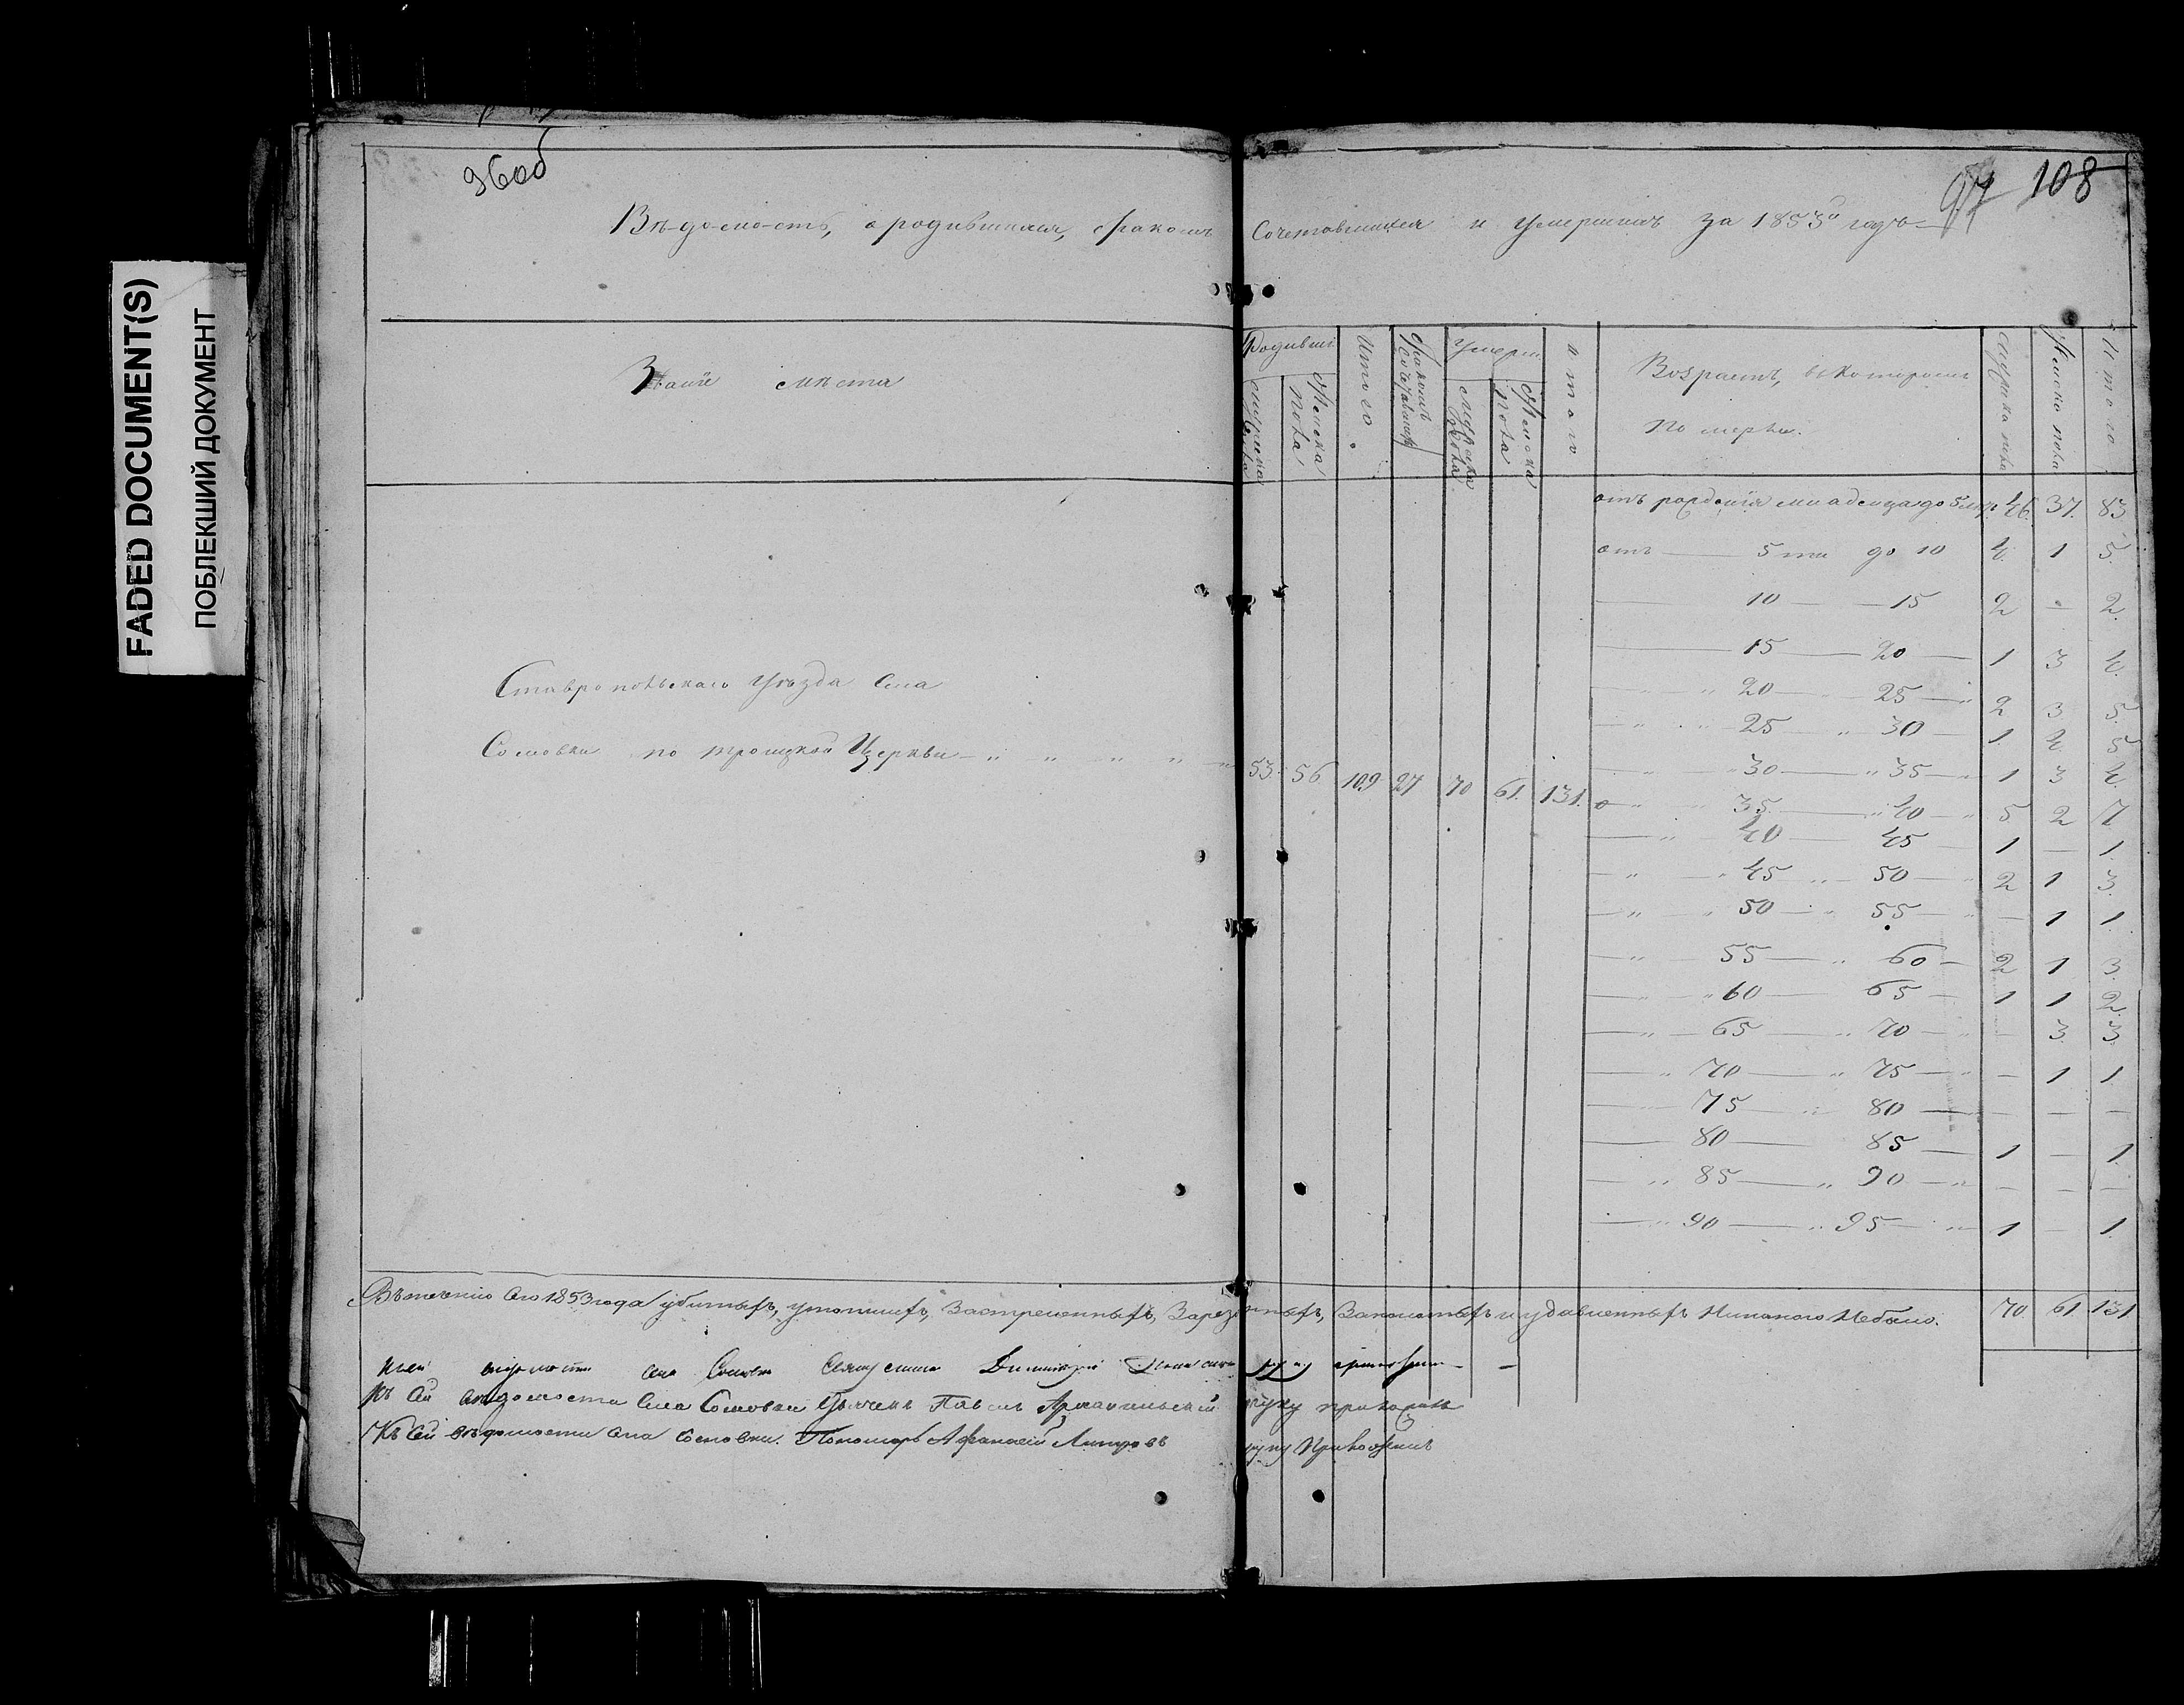 FADED DOCUMENT(S)
ПОБЛЕКШИЙ ДОКУМЕНТ
96об
97 108
Вѣдомость, о родившихся, бракомъ Сочетавшихся и Умершихъ за 1853й годъ
Званіе мѣста
Родивши
мужеска пола
Женска пола
Итого
бракомъ Сочетавши
Умерши
мужеска пола
Женска пола
итого
Возрастъ, въ которомъ
Померли.
Мужеска пола
Женска пола
Итого
отъ рожденія младенца до 5 лѣт 46. 37. 83
отъ — 5ти до 10 4. 1 5.
10 — 15 2 — 2.
15 — 20 — 1 3 4.
20 — 25 — 2 3 5.
25 — 30 — 1. 4. 5
30 — 35 — 1 3 4.
35 — 40 — 5 2 7
40 — 45 — 1 — 1.
45 — 50 — 2 1 3.
50 — 55 — — 1 1.
55 — 60 — 2 1 3.
60 — 65 — 1 1 2.
65 — 70 — — 3. 3.
70 — 75 — — 1 1.
75 — 80 — — — —
80 — 85 — 1 — 1.
85 — 90 — — — —
90 — 95 — 1 — 1.
Ставропольскаго Уѣзда Села
Сосновки по троицкой Церкви — 53. 56 109 27 70 61. 131.
Втеченіе сего 1853 года убитыхъ, утопшихъ, Застреленныхъ, Зарезанныхъ, Заколотыхъ и удавленныхъ Никакого Небыло. 70. 61. 131
Къ сей ведомости села Сосновки Священникъ Димитрій руку приложилъ —
Къ Сей ведомости Села Сосновки Дьячекъ Павелъ Архангельскій руку приложилъ
Къ Сей вѣдомости Села Сосновки. Пономарь Афанасій руку Приложилъ